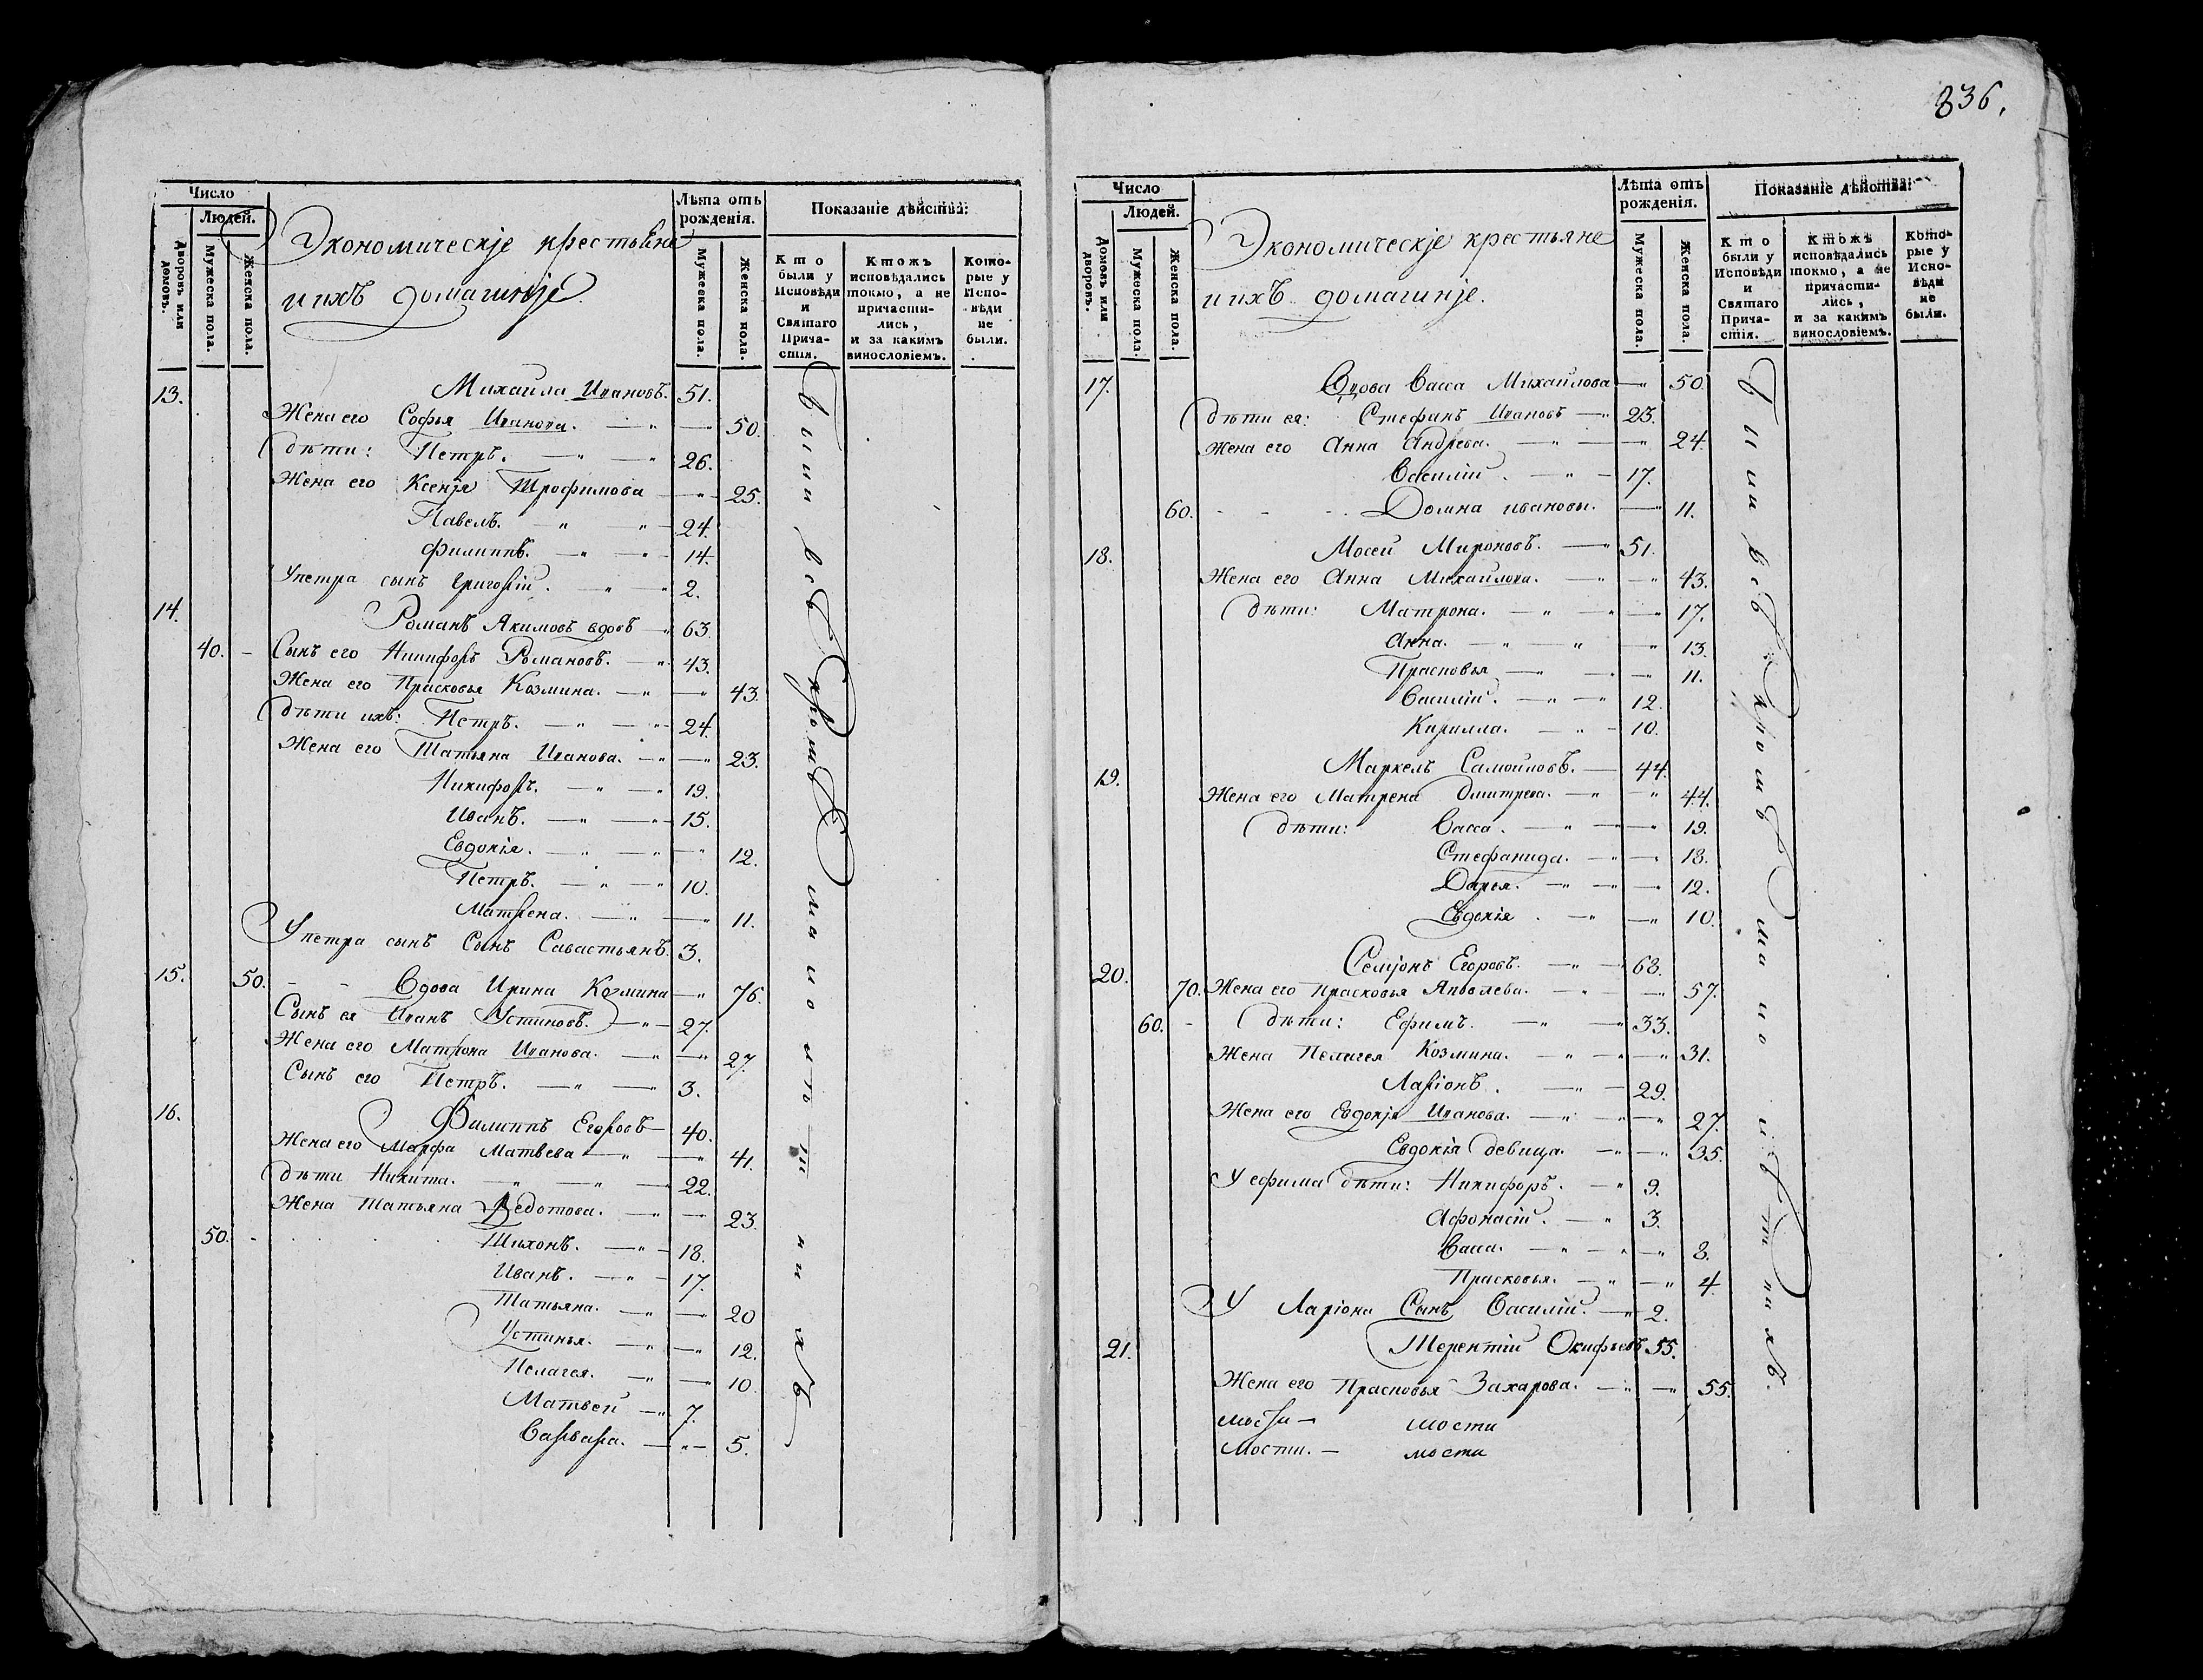 836.
Число
Людей.
Дворовъ или домовъ.
Мужеска пола.
Женска пола.
Экономическіе крестьяне
и ихъ домашніе.
Лѣта отъ рожденія.
Мужеска пола.
Женска пола.
Показаніе дѣйства:
Кто были у Исповѣди и Святаго Причастія.
Ктожъ исповѣдались токмо, а не причастились, и за какимъ винословіемъ.
Которые у Исповѣди не были.
13. Михайла Ивановъ. 51.
Жена его Софья Иванова. — " — 50.
дѣти: Петръ. — " — " 26.
Жена его Ксенія Трофимова — " — 25.
Павелъ. — " " — 24.
Филиппъ. — " — " — 14.
У петра сынъ Григорій. — " — " 2.
14. Романъ Якимовъ вдовъ — " 63.
40. — Сынъ его Никифоръ Романовъ. — " 43.
Жена его Прасковья Козмина. — " — " 43.
дѣти ихъ: Петръ. — " — " — 24.
Жена его Татьяна Иванова. — " — " 23.
Никифоръ. — " — " 19.
Иванъ. — " — " — 15.
Евдокія. — " — " — " 12.
Петръ. — " — " 10.
Матрена. — " — " 11.
У петра сынъ Сынъ Савастьянъ. 3.
15. 50. — — Вдова Ирина Козмина — " 76.
Сынъ ея Иванъ Устиновъ. — " — 27.
Жена его Матрона Иванова. — " — " 27.
Сынъ его Петръ. — " — " 3.
16. Филиппъ Егоровъ — 40.
Жена его Марфа Матвева — " — " 41.
дѣти Никита. — " — " — 22.
Жена Татьяна Ѳедотова. — " — " 23.
50. — Тихонъ. — " — 18.
Иванъ. — " — 17.
Татьяна. — " — 20
Устинья. — " — " 12.
Пелагея. — " — " 10.
Матвей — " 7.
Варвара. — " — 5.
были всѣ кромѣ малолѣтнихъ
Число
Людей.
Домовъ или дворовъ.
Мужеска пола.
Женска пола.
Экономическіе крестьяне
и ихъ домашніе.
Лѣта отъ рожденія.
Мужеска пола.
Женска пола.
Показаніе дѣйства:
Кто были у Исповѣди и Святаго Причастія.
Ктожъ исповѣдались токмо, а не причастились, и за какимъ винословіемъ.
Которые у Исповѣди не были.
17. Вдова Васса Михайлова — " 50.
дѣти ея: Стефанъ Ивановъ — " 23.
Жена его Анна Андрева. — " — " 24.
Василій. — " — 17.
60. - - - Домна ивановы. — " 11.
18. Мосей Мироновъ. — " 51.
Жена его Анна Михайлова. — " — " 43.
дѣти: Матрона. — " — " — " 17.
Анна. — " — " — " 13.
Прасковья — " — " — " 11.
Василій. — " — " 12.
Кирилла. — " — 10.
19. Маркелъ Самойловъ. — 44.
Жена его Матрена Дмитрева. — " — " 44.
дѣти: Васса. — " — " — " 19.
Стефанида. — " — " 18.
Дарья. — " — " — " 12.
Евдокія. — " — " 10.
20. Семіонъ Егоровъ. — " — 68.
70. Жена его Прасковья Яковлева. — " — " 57.
60. — дѣти: Ефимъ. — " 33.
Жена Пелагея Козмина. — " — " — " 31.
Ларіонъ. — " — 29.
Жена его Евдокія Иванова. — " — " — " 27
Евдокія девица. — " — " 35.
У ефима дѣти: Никифоръ. — " 9.
Афонасій. — " 3.
Васса. — " — " — " 8.
Прасковья. — " — " 4.
У Ларіона Сынъ Василій. — " 2.
21. Терентій Окифьевъ 55.
Жена его Прасковья Захарова. — " — " 55.
мости — мости
Мости. — мости
были всѣ кромѣ малолѣтнихъ.